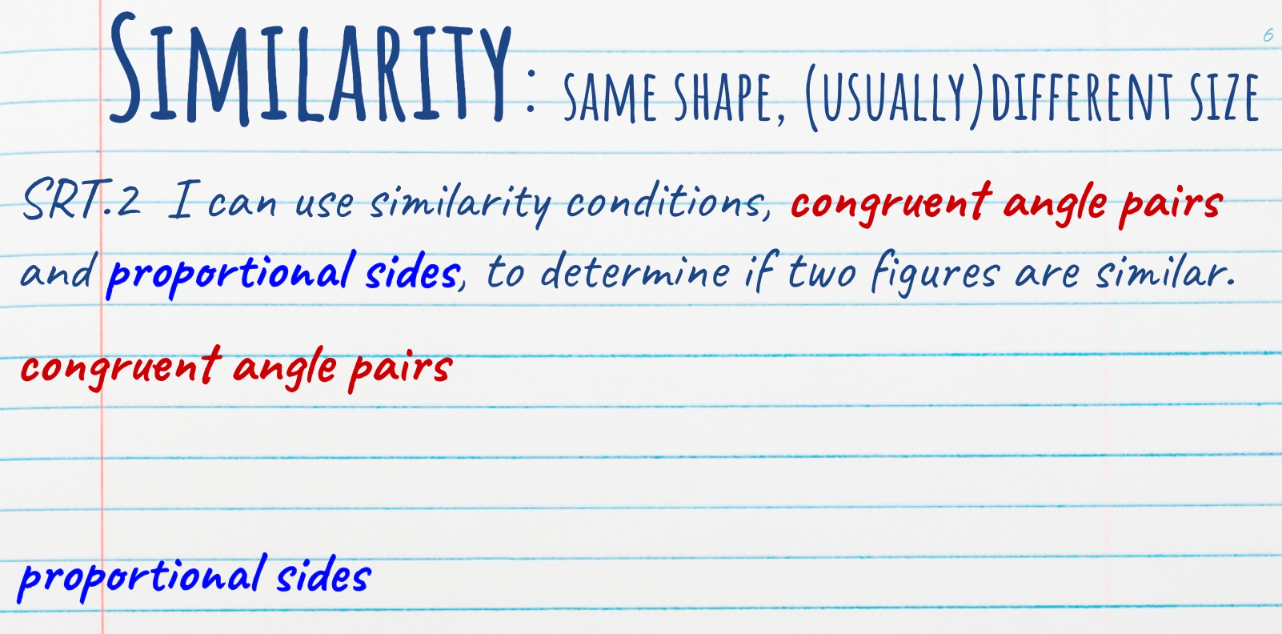 6
SIMILARITY: SAME SHAPE, (USUALLY)DIFFERENT SIZE
SRT.2 I can use similarity conditions, congruent angle pairs
and proportional sides, to determine if two figures are similar.
congruent angle pairs
proportional sides